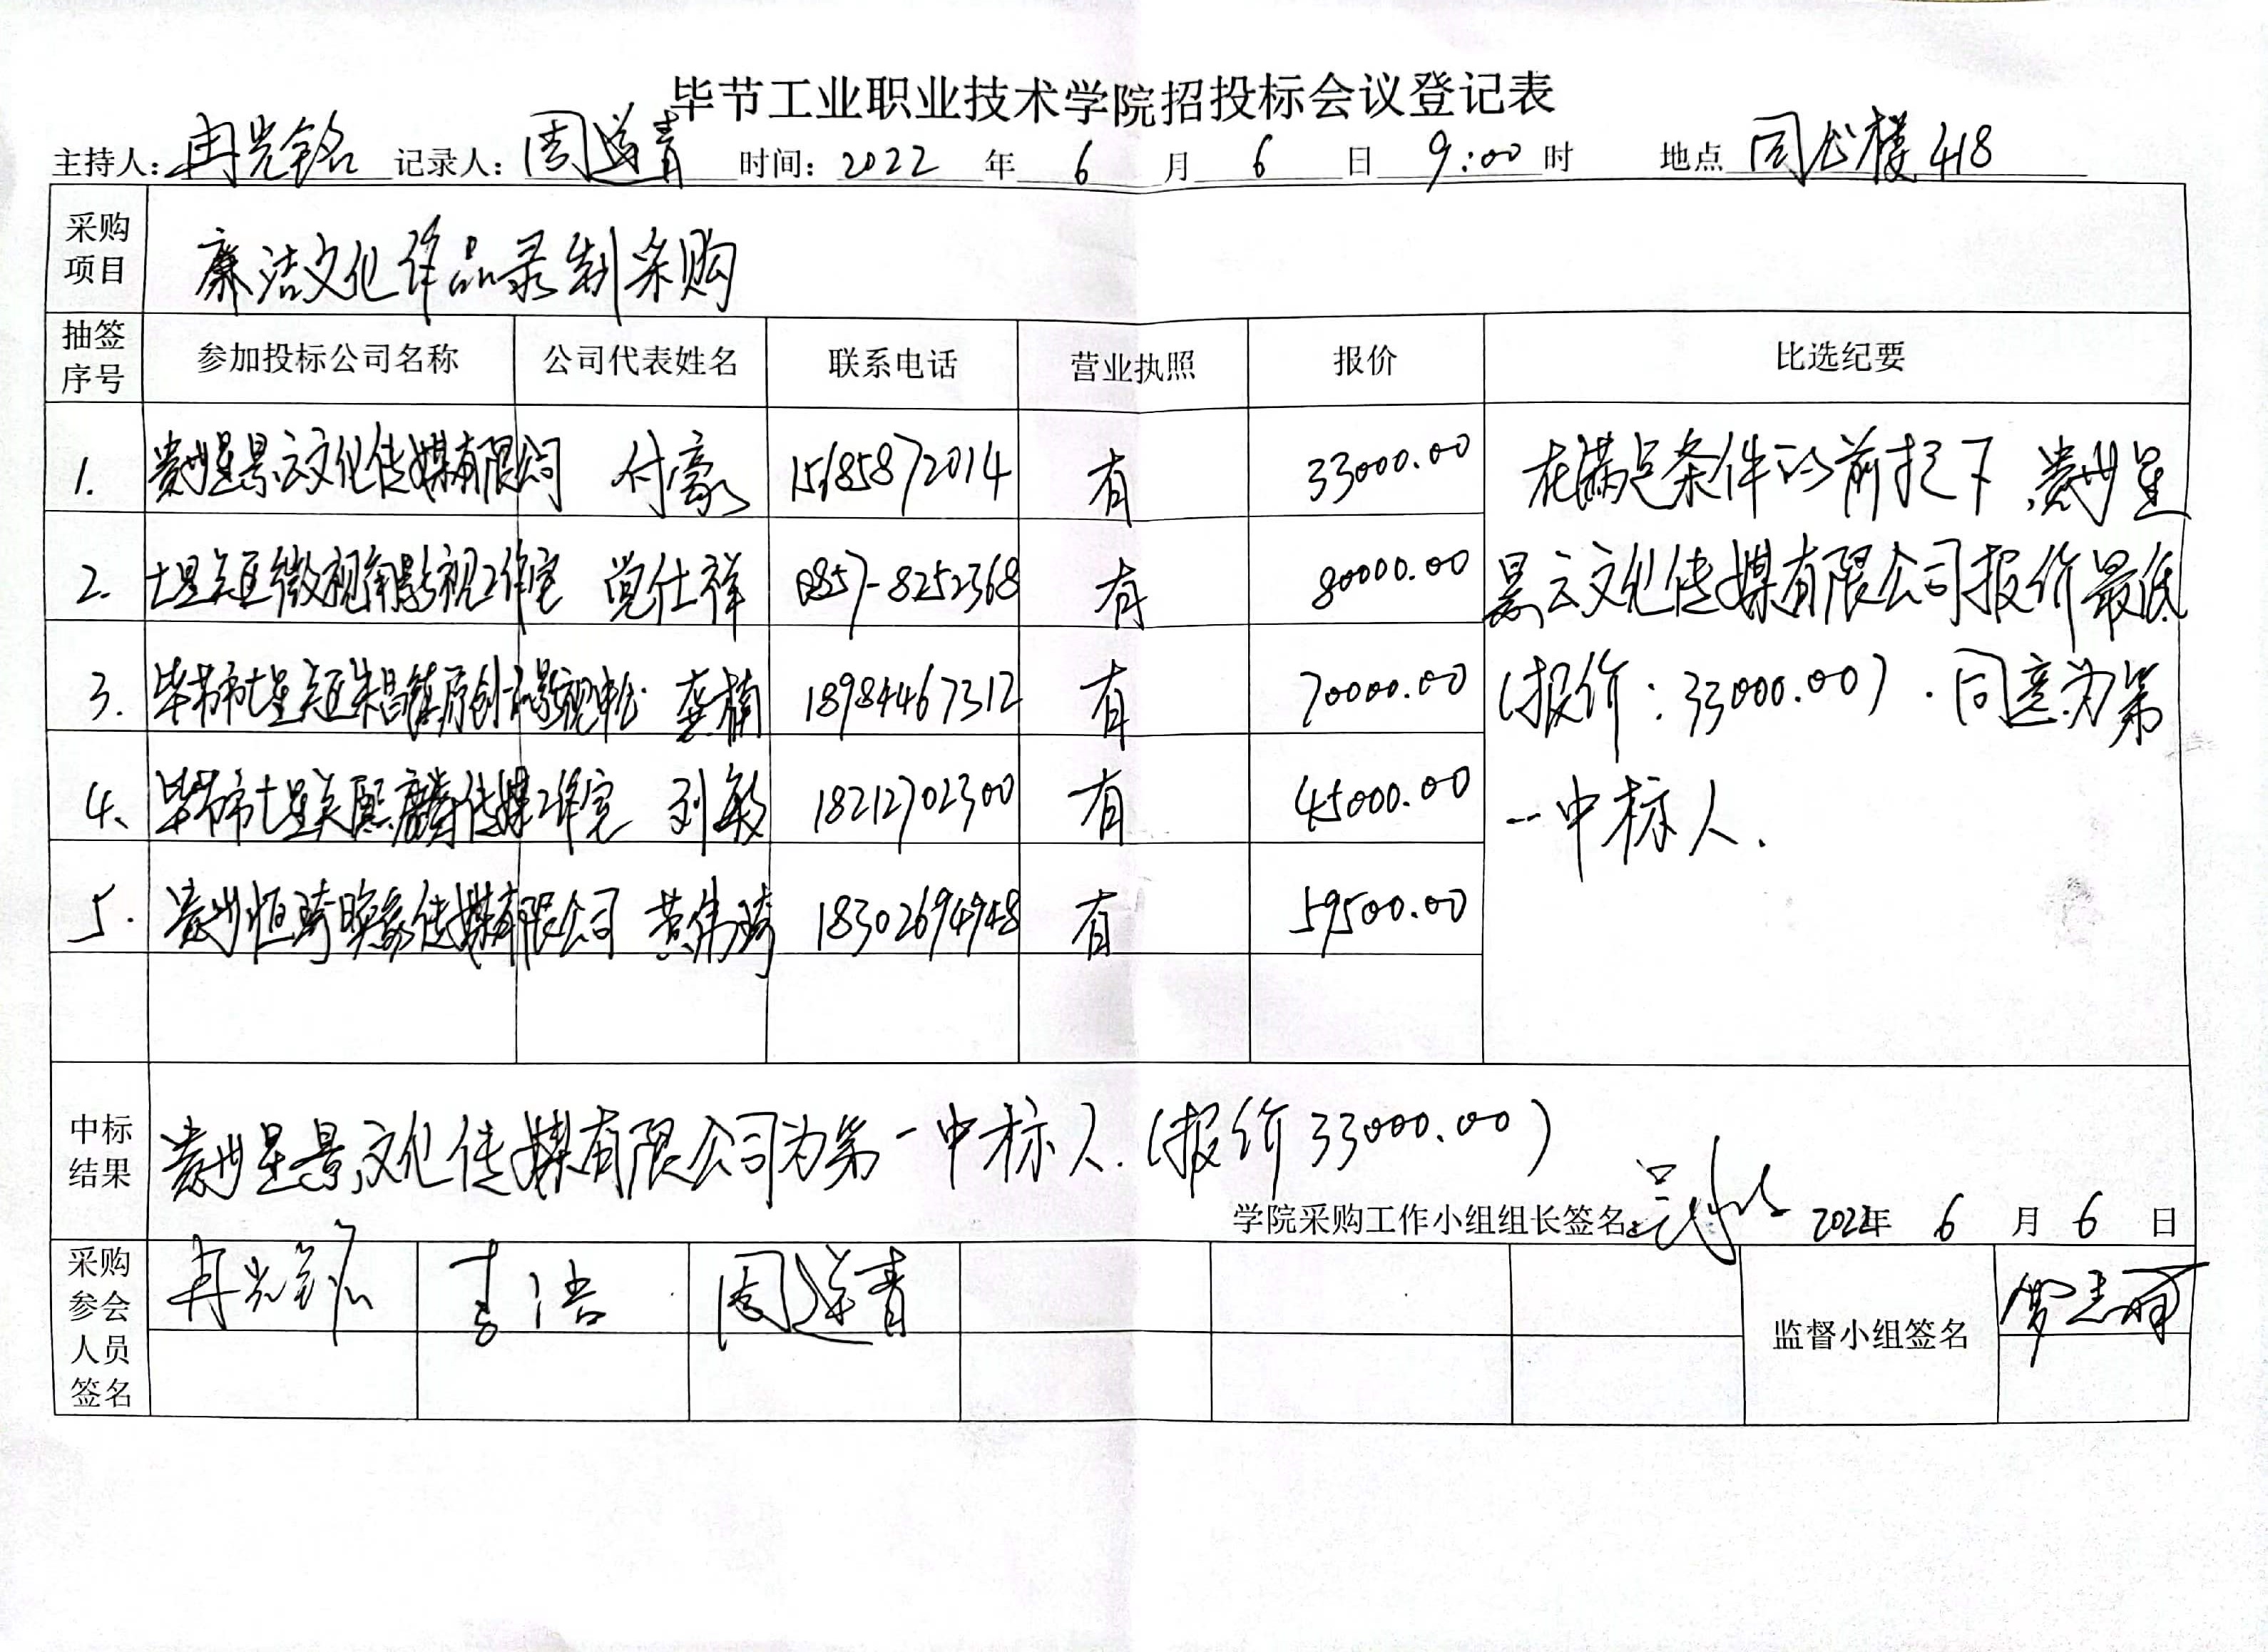 毕节工业职业技术学院招投标会议登记表
主持人：冉光铭 记录人：周道青 时间：2022 年 6 月 6 日 9:00 时 地点 418
采购项目 廉洁文化作品录制采购
抽签序号 参加投标公司名称 公司代表姓名 联系电话 营业执照 报价 比选纪要
1. 贵州星景云文化传媒有限公司 付豪 15185872014 有 33000.00
2. 七星关区微视角影视工作室 党仕祥 0857-8252368 有 80000.00
3. 毕节市七星关区朱昌镇原创 影视中心 龚楠 18984467312 有 70000.00
4、 毕节市七星关熙麟传媒工作室 刘敏 18212702300 有 45000.00
5. 贵州恒琦映象传媒有限公司 黄伟琦 18302694948 有 59500.00
在满足条件的前提下，贵州星
景云文化传媒有限公司报价最低
（报价：33000.00）.同意为第
一中标人.
中标结果 贵州星景云文化传媒有限公司为第一中标人.（报价33000.00）
学院采购工作小组组长签名 2022年 6 月 6 日
采购参会人员签名 冉光铭 李浩 周道青 监督小组签名